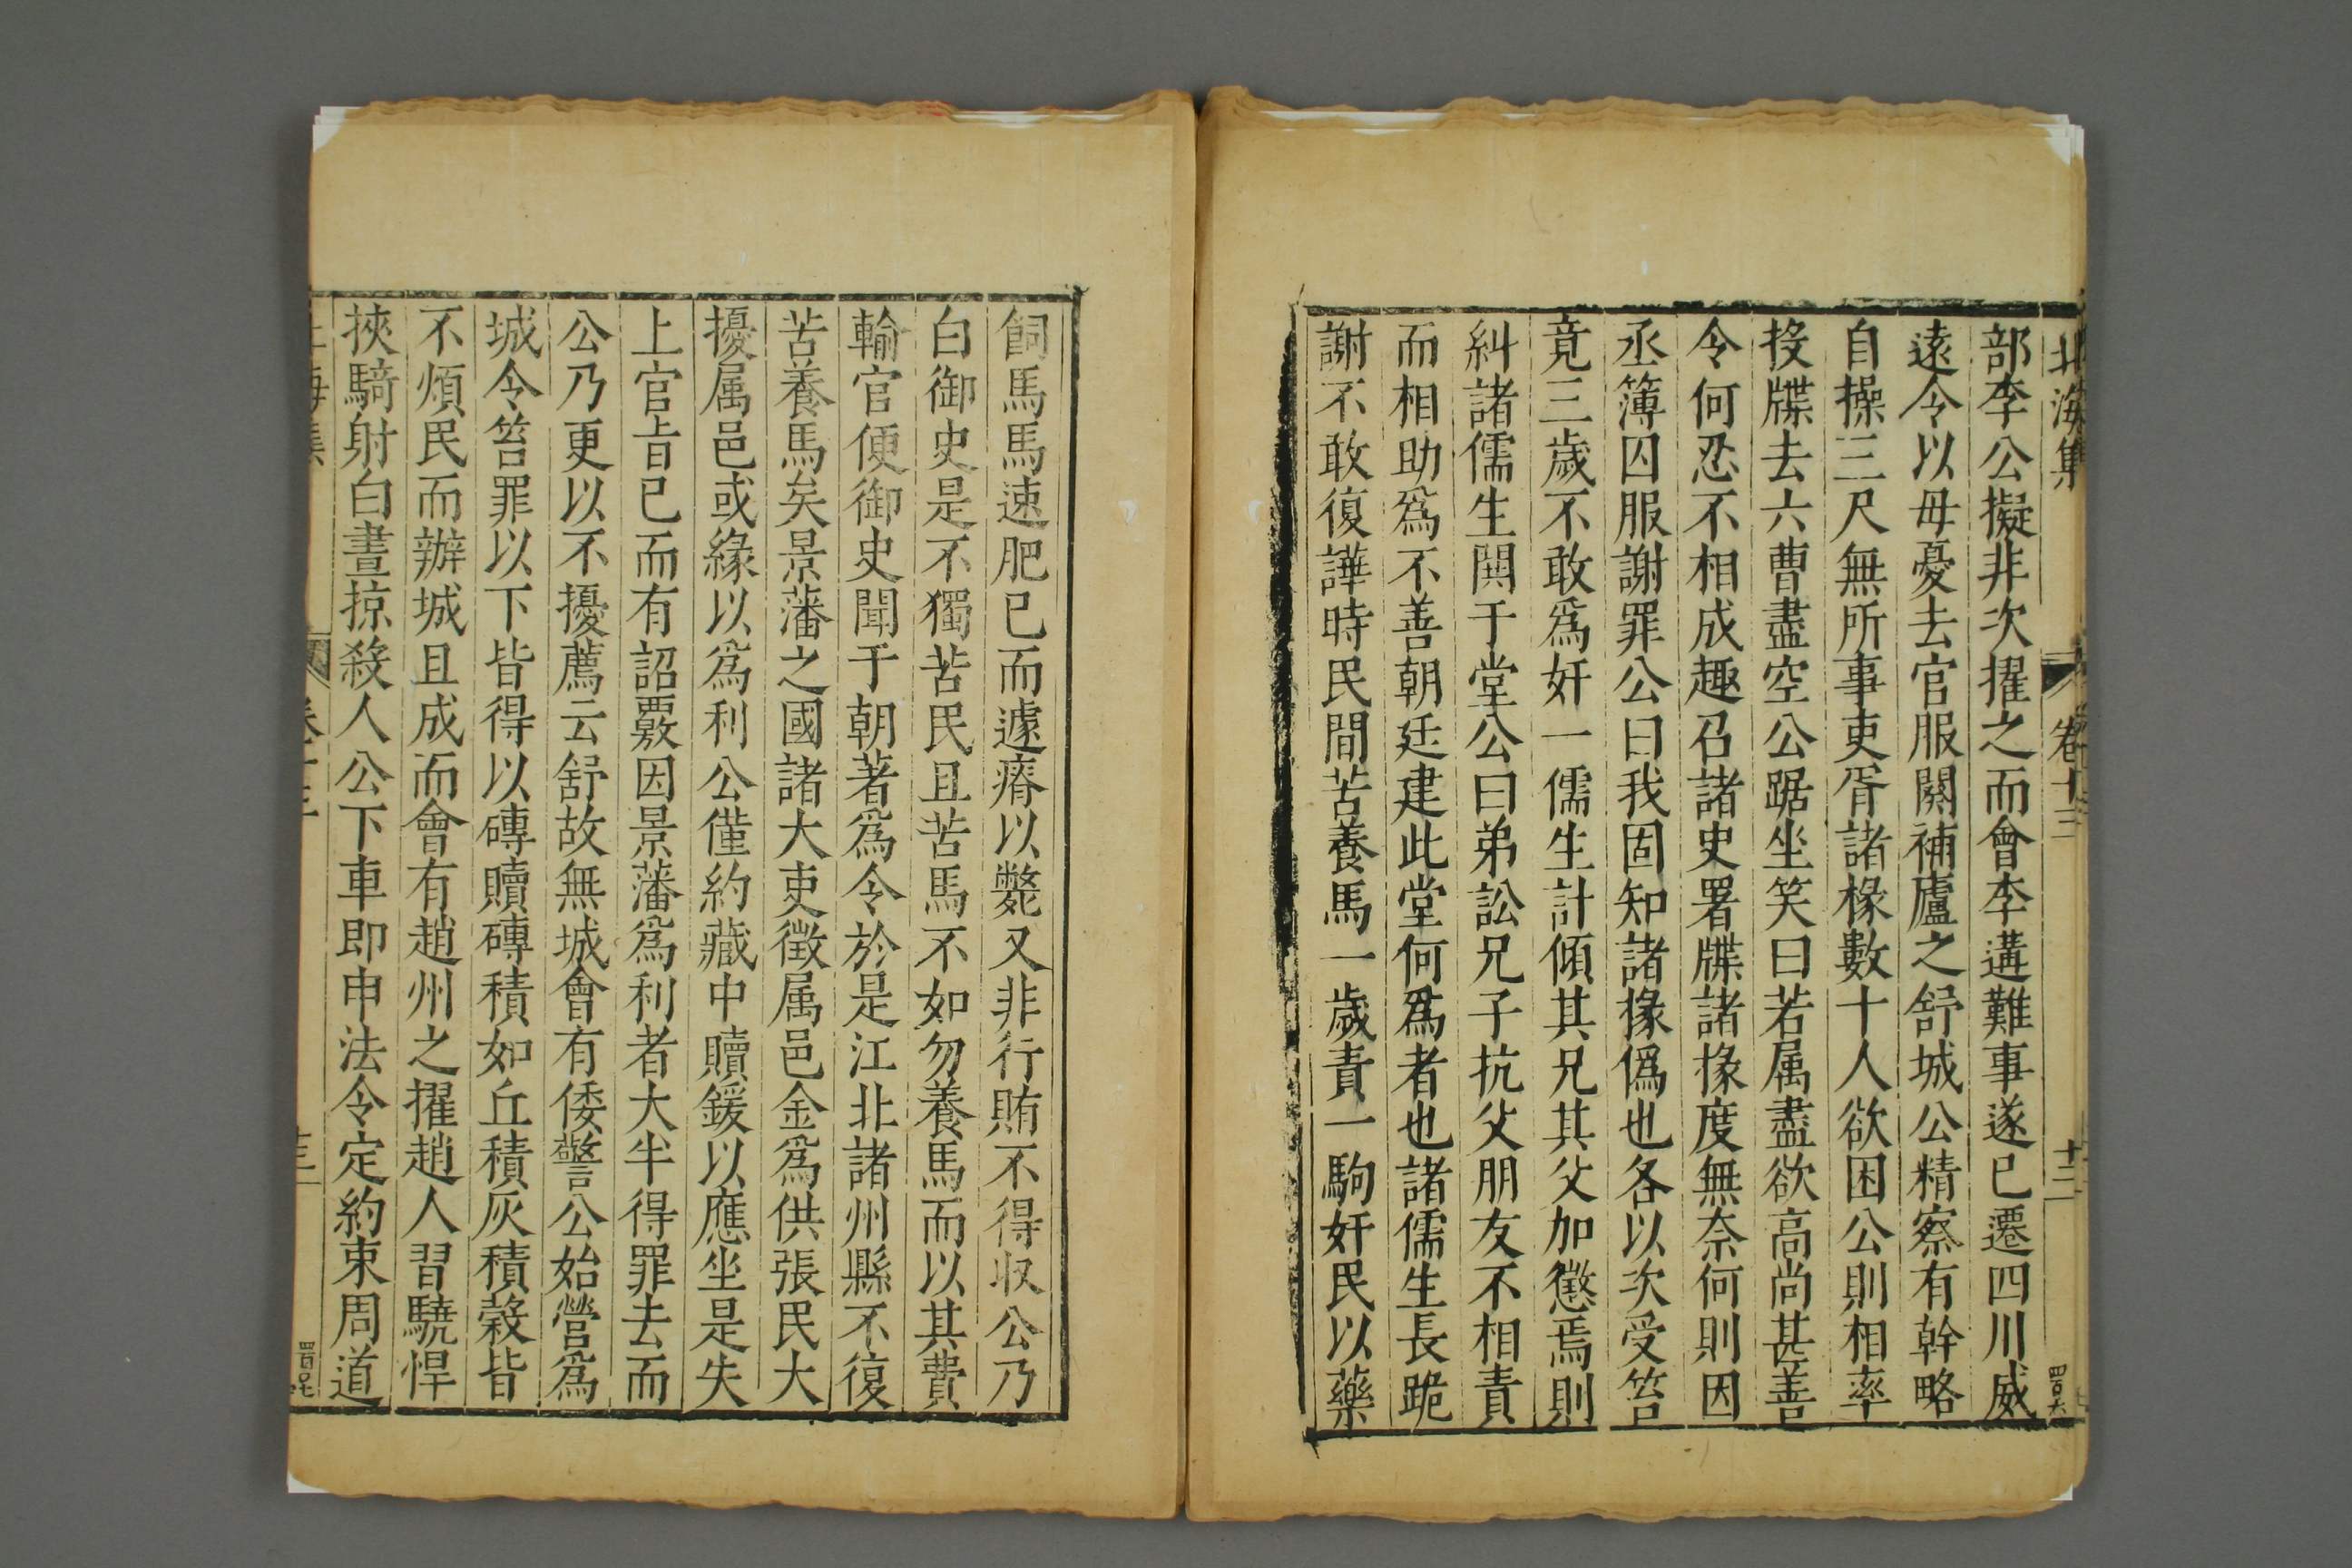 北海集 卷十三 十二
部李公擬非次擢之而會李遘難事遂已遷四川威
遠令以母憂去官服闋補廬之舒城公精察有幹略
自操三尺無所事吏胥諸椽數十人欲困公則相率
投牒去六曹盡空公踞坐笑曰若属盡欲高尚甚善
令何忍不相成趣召諸史署牒諸掾度無奈何則因
丞簿囚服謝罪公曰我固知諸掾僞也各以次受笞
竟三歲不敢爲奸一儒生計傾其兄其父加懲焉則
糾諸儒生閧于堂公曰弟訟兄子抗父朋友不相責
而相助爲不善朝廷建此堂何爲者也諸儒生長跪
謝不敢復譁時民間苦養馬一歲責一駒奸民以藥
飼馬馬速肥已而遽瘠以斃又非行賄不得収公乃
白御史是不獨苦民且苦馬不如勿養馬而以其費
輸官便御史聞于朝著爲令於是江北諸州縣不復
苦養馬矣景藩之國諸大吏徴属邑金爲供張民大
擾属邑或緣以爲利公僅約藏中贖鍰以應坐是失
上官㫖已而有詔覈因景藩爲利者大半得罪去而
公乃更以不擾薦云舒故無城會有倭警公始營爲
城令笞罪以下皆得以磚贖磚積如丘積灰積穀皆
不煩民而辦城且成而會有趙州之擢趙人習驍悍
挾騎射白晝掠殺人公下車即申法令定約束周道